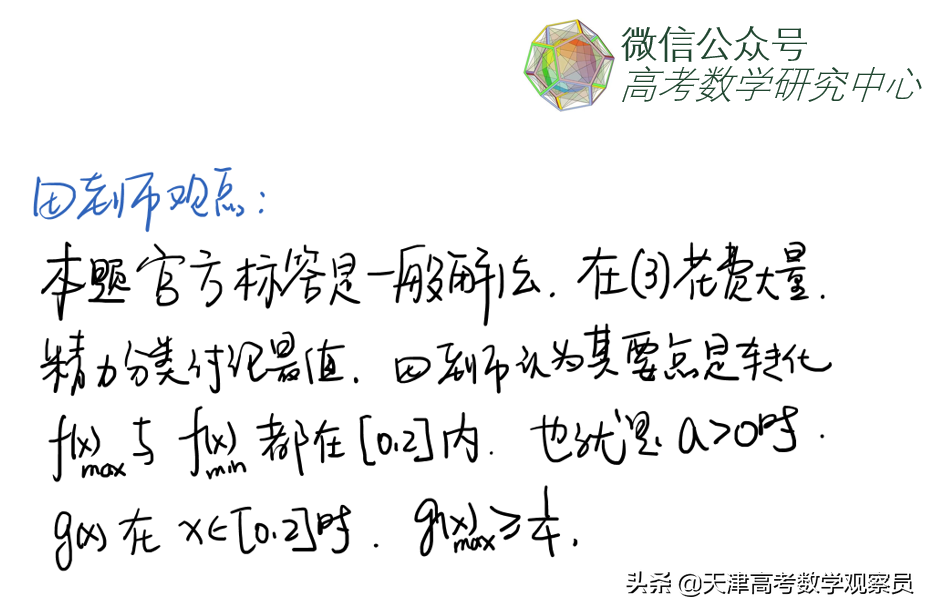 微信公众号
高考数学研究中心
田老师观点:
本题官方标答是一般解法. 在(3)花费大量.
精力分类讨论最值. 田老师认为其要点是转化
f(x)max与 f(x)min 都在[0,2]内. 也就是 a>0时.
g(x) 在 x∈[0,2]时. g(x)max≥1/4.
头条 @天津高考数学观察员